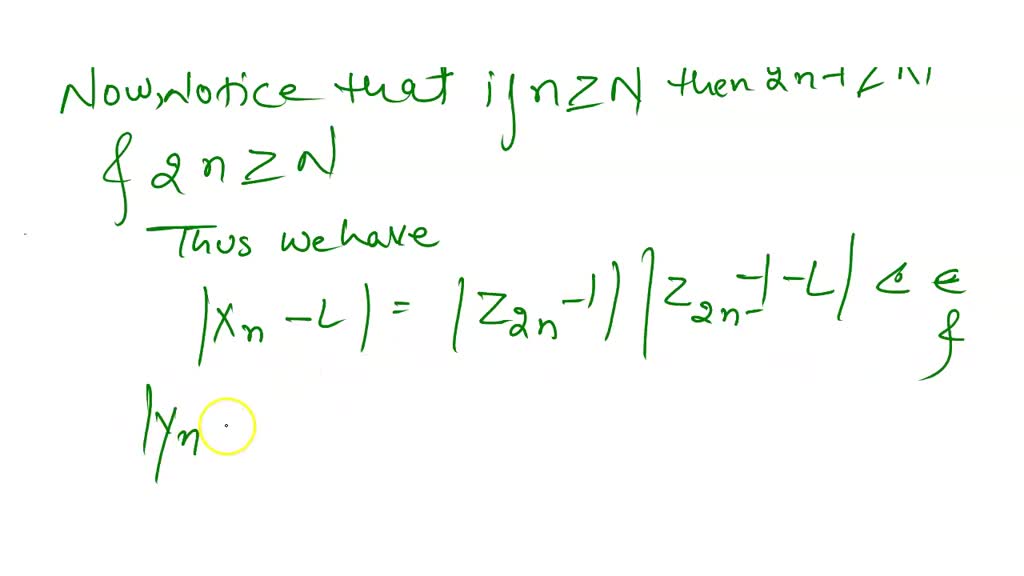 Now, Notice that if n ≥ N then 2n-1
& 2n ≥ N
Thus we have
|Xn - L| = |Z2n -1)| |Z2n-1 - L| < ϵ
&
|Yn